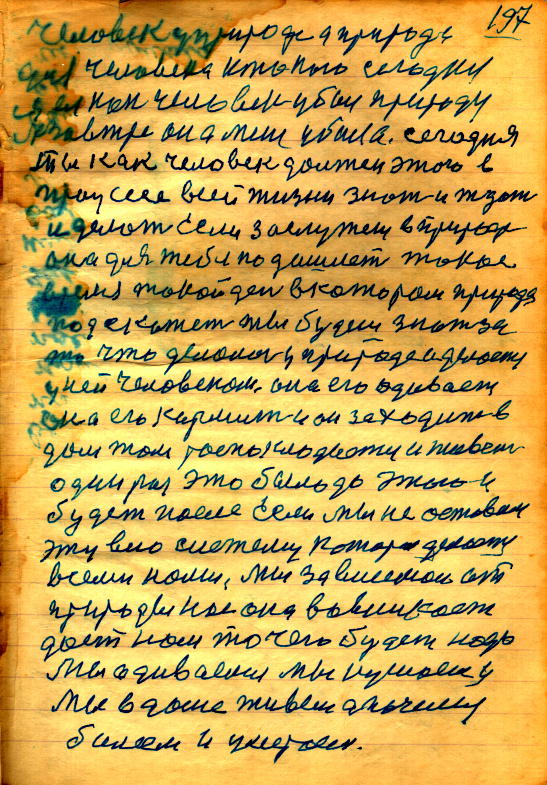 197
человек у природе а природа
для человека кто кого сегодня
я ей как человек убил природу
а завтра она меня убила. сегодня
ты как человек должен этого в
процессе всей жизни знат и ждат
и делат Если заслужем в природе
она для тебя подошлет такое
время такой ден в котором природа
подскажет ты будеш знат за
то что делаеш у природе делаеш
у ней человеком. она его одиваеш
она его кормит и он заходит в
дом там и живет
один раз это было до этого и
будет после Если мы не оставим
эту всю систему которая делаеш
всеми нами, мы зависемои от
природы она
даст нам то чего будет надо
Мы одиваемся мы кушаем у
мы в доме живем а почему
болеем и умераем.